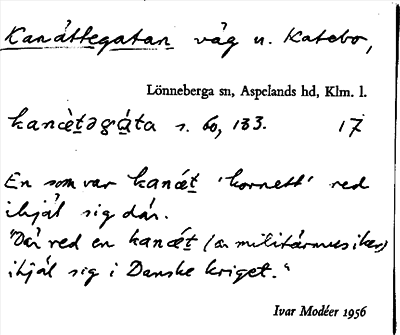 Kanättegatan väg n. Katebo,
Lönneberga sn, Aspelands hd, Klm. l.
kanètəgáta s. 60, 133. 17
En som var kanǽt 'kornett' red
ihjäl sig där.
"Där red en kanǽt (= militärmusiker)
ihjäl sig i Danske kriget."
Ivar Modéer 1956